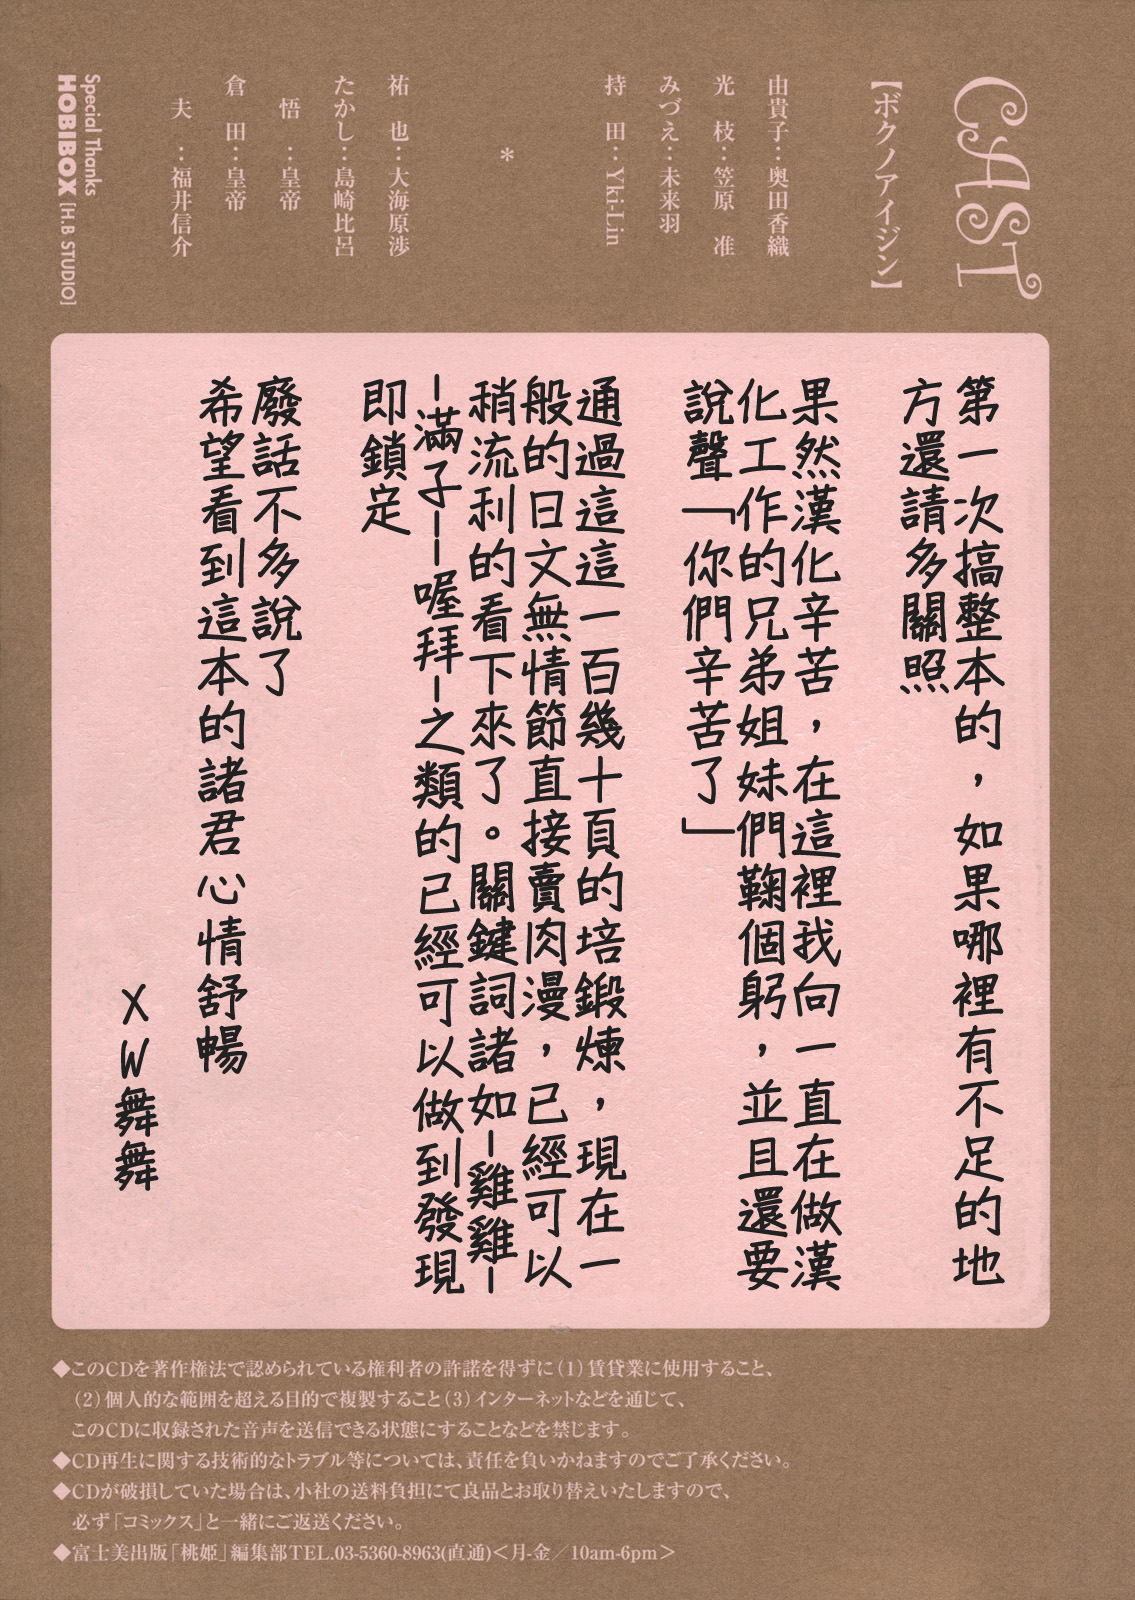 CAST
【ボクノアイジン】
由貴子：奥田香織
光　枝：笠原　准
みづえ：未来羽
持　田：Yki-Lin
＊
祐　也：大海原渉
たかし：島崎比呂
悟　：皇帝
倉　田：皇帝
夫　：福井信介
Special Thanks
HOBIBOX [H.B STUDIO]
第一次搞整本的，如果哪裡有不足的地
方還請多關照
果然漢化辛苦，在這裡我向一直在做漢
化工作的兄弟姐妹們鞠個躬，並且還要
說聲「你們辛苦了」
通過這這一百幾十頁的培鍛煉，現在一
般的日文無情節直接賣肉漫，已經可以
稍流利的看下來了。關鍵詞諸如-雞雞-
-滿子--喔拜-之類的已經可以做到發現
即鎖定
廢話不多說了
希望看到這本的諸君心情舒暢
XW舞舞
◆このCDを著作権法で認められている権利者の許諾を得ずに（1）賃貸業に使用すること、
（2）個人的な範囲を超える目的で複製すること（3）インターネットなどを通じて、
このCDに収録された音声を送信できる状態にすることなどを禁じます。
◆CD再生に関する技術的なトラブル等については、責任を負いかねますのでご了承ください。
◆CDが破損していた場合は、小社の送料負担にて良品とお取り替えいたしますので、
必ず「コミックス」と一緒にご返送ください。
◆富士美出版「桃姫」編集部TEL.03-5360-8963(直通)＜月-金／10am-6pm＞